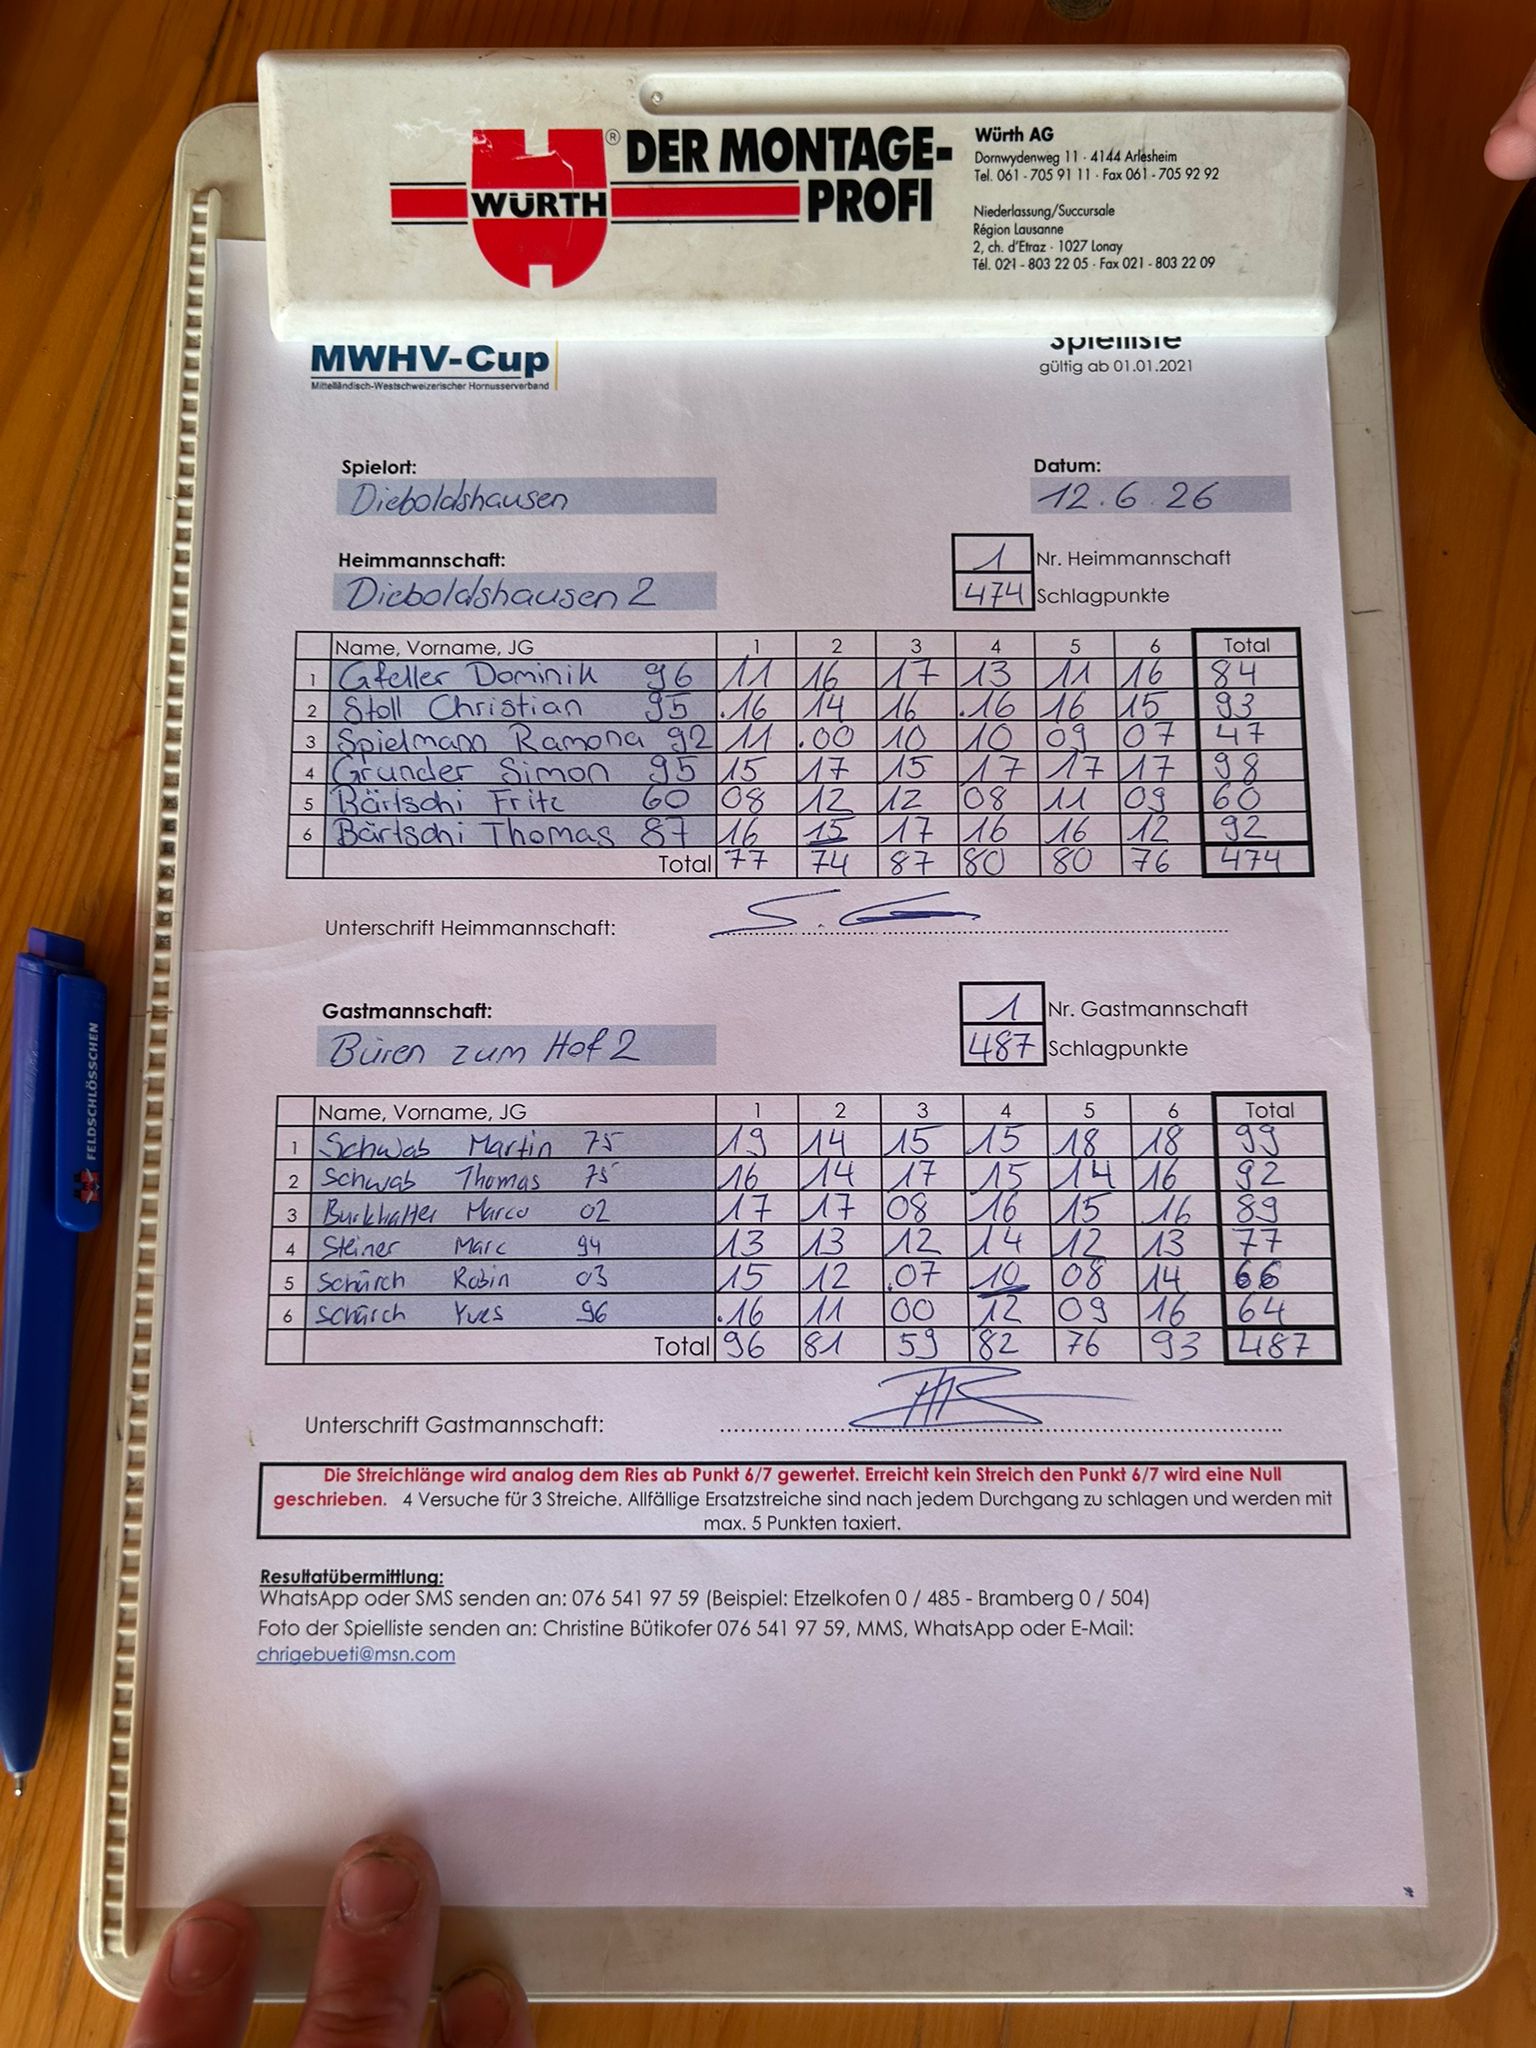 WÜRTH ® DER MONTAGE-PROFI
Würth AG
Dornwydenweg 11 · 4144 Arlesheim
Tel. 061 - 705 91 11 · Fax 061 - 705 92 92
Niederlassung/Succursale
Région Lausanne
2, ch. d'Etraz · 1027 Lonay
Tél. 021 - 803 22 05 · Fax 021 - 803 22 09
MWHV-Cup
Mittelländisch-Westschweizerischer Hornusserverband
Spielliste
gültig ab 01.01.2021
Spielort: Datum:
Dieboldshausen 12.6.26
Heimmannschaft: 1 Nr. Heimmannschaft
Dieboldshausen 2 474 Schlagpunkte
Name, Vorname, JG 1 2 3 4 5 6 Total
1 Gfeller Dominik 96 11 16 17 13 11 16 84
2 Stoll Christian 95 .16 14 16 .16 16 15 93
3 Spielmann Ramona 92 11 .00 10 10 09 07 47
4 Grunder Simon 95 15 17 15 17 17 17 98
5 Bärtschi Fritz 60 08 12 12 08 11 09 60
6 Bärtschi Thomas 87 16 15 17 16 16 12 92
Total 77 74 87 80 80 76 474
Unterschrift Heimmannschaft:
Gastmannschaft: 1 Nr. Gastmannschaft
Büren zum Hof 2 487 Schlagpunkte
Name, Vorname, JG 1 2 3 4 5 6 Total
1 Schwab Martin 75 19 14 15 15 18 18 99
2 Schwab Thomas 75 16 14 17 15 14 16 92
3 Burkhalter Marco 02 17 17 08 16 15 16 89
4 Steiner Marc 94 13 13 12 14 12 13 77
5 Schürch Robin 03 15 12 .07 10 08 14 66
6 Schürch Yves 96 .16 11 00 12 09 16 64
Total 96 81 59 82 76 93 487
Unterschrift Gastmannschaft:
Die Streichlänge wird analog dem Ries ab Punkt 6/7 gewertet. Erreicht kein Streich den Punkt 6/7 wird eine Null
geschrieben. 4 Versuche für 3 Streiche. Allfällige Ersatzstreiche sind nach jedem Durchgang zu schlagen und werden mit
max. 5 Punkten taxiert.
Resultatübermittlung:
WhatsApp oder SMS senden an: 076 541 97 59 (Beispiel: Etzelkofen 0 / 485 - Bramberg 0 / 504)
Foto der Spielliste senden an: Christine Bütikofer 076 541 97 59, MMS, WhatsApp oder E-Mail:
chrigebueti@msn.com
FELDSCHLÖSSCHEN